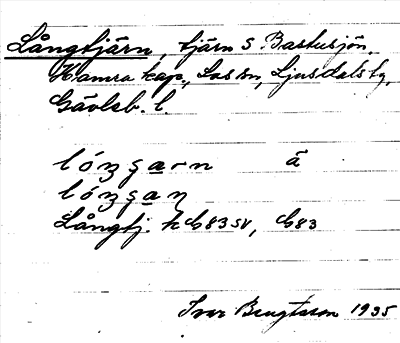 Långtjärn, tjärn S Bastusjön,
Hamra kap., Los sn, Ljusdals tg,
Gävleb. l.
lóngarn ä
lóngan
Långtj. kG83SV, G83
Ivar Bengtsson 1935